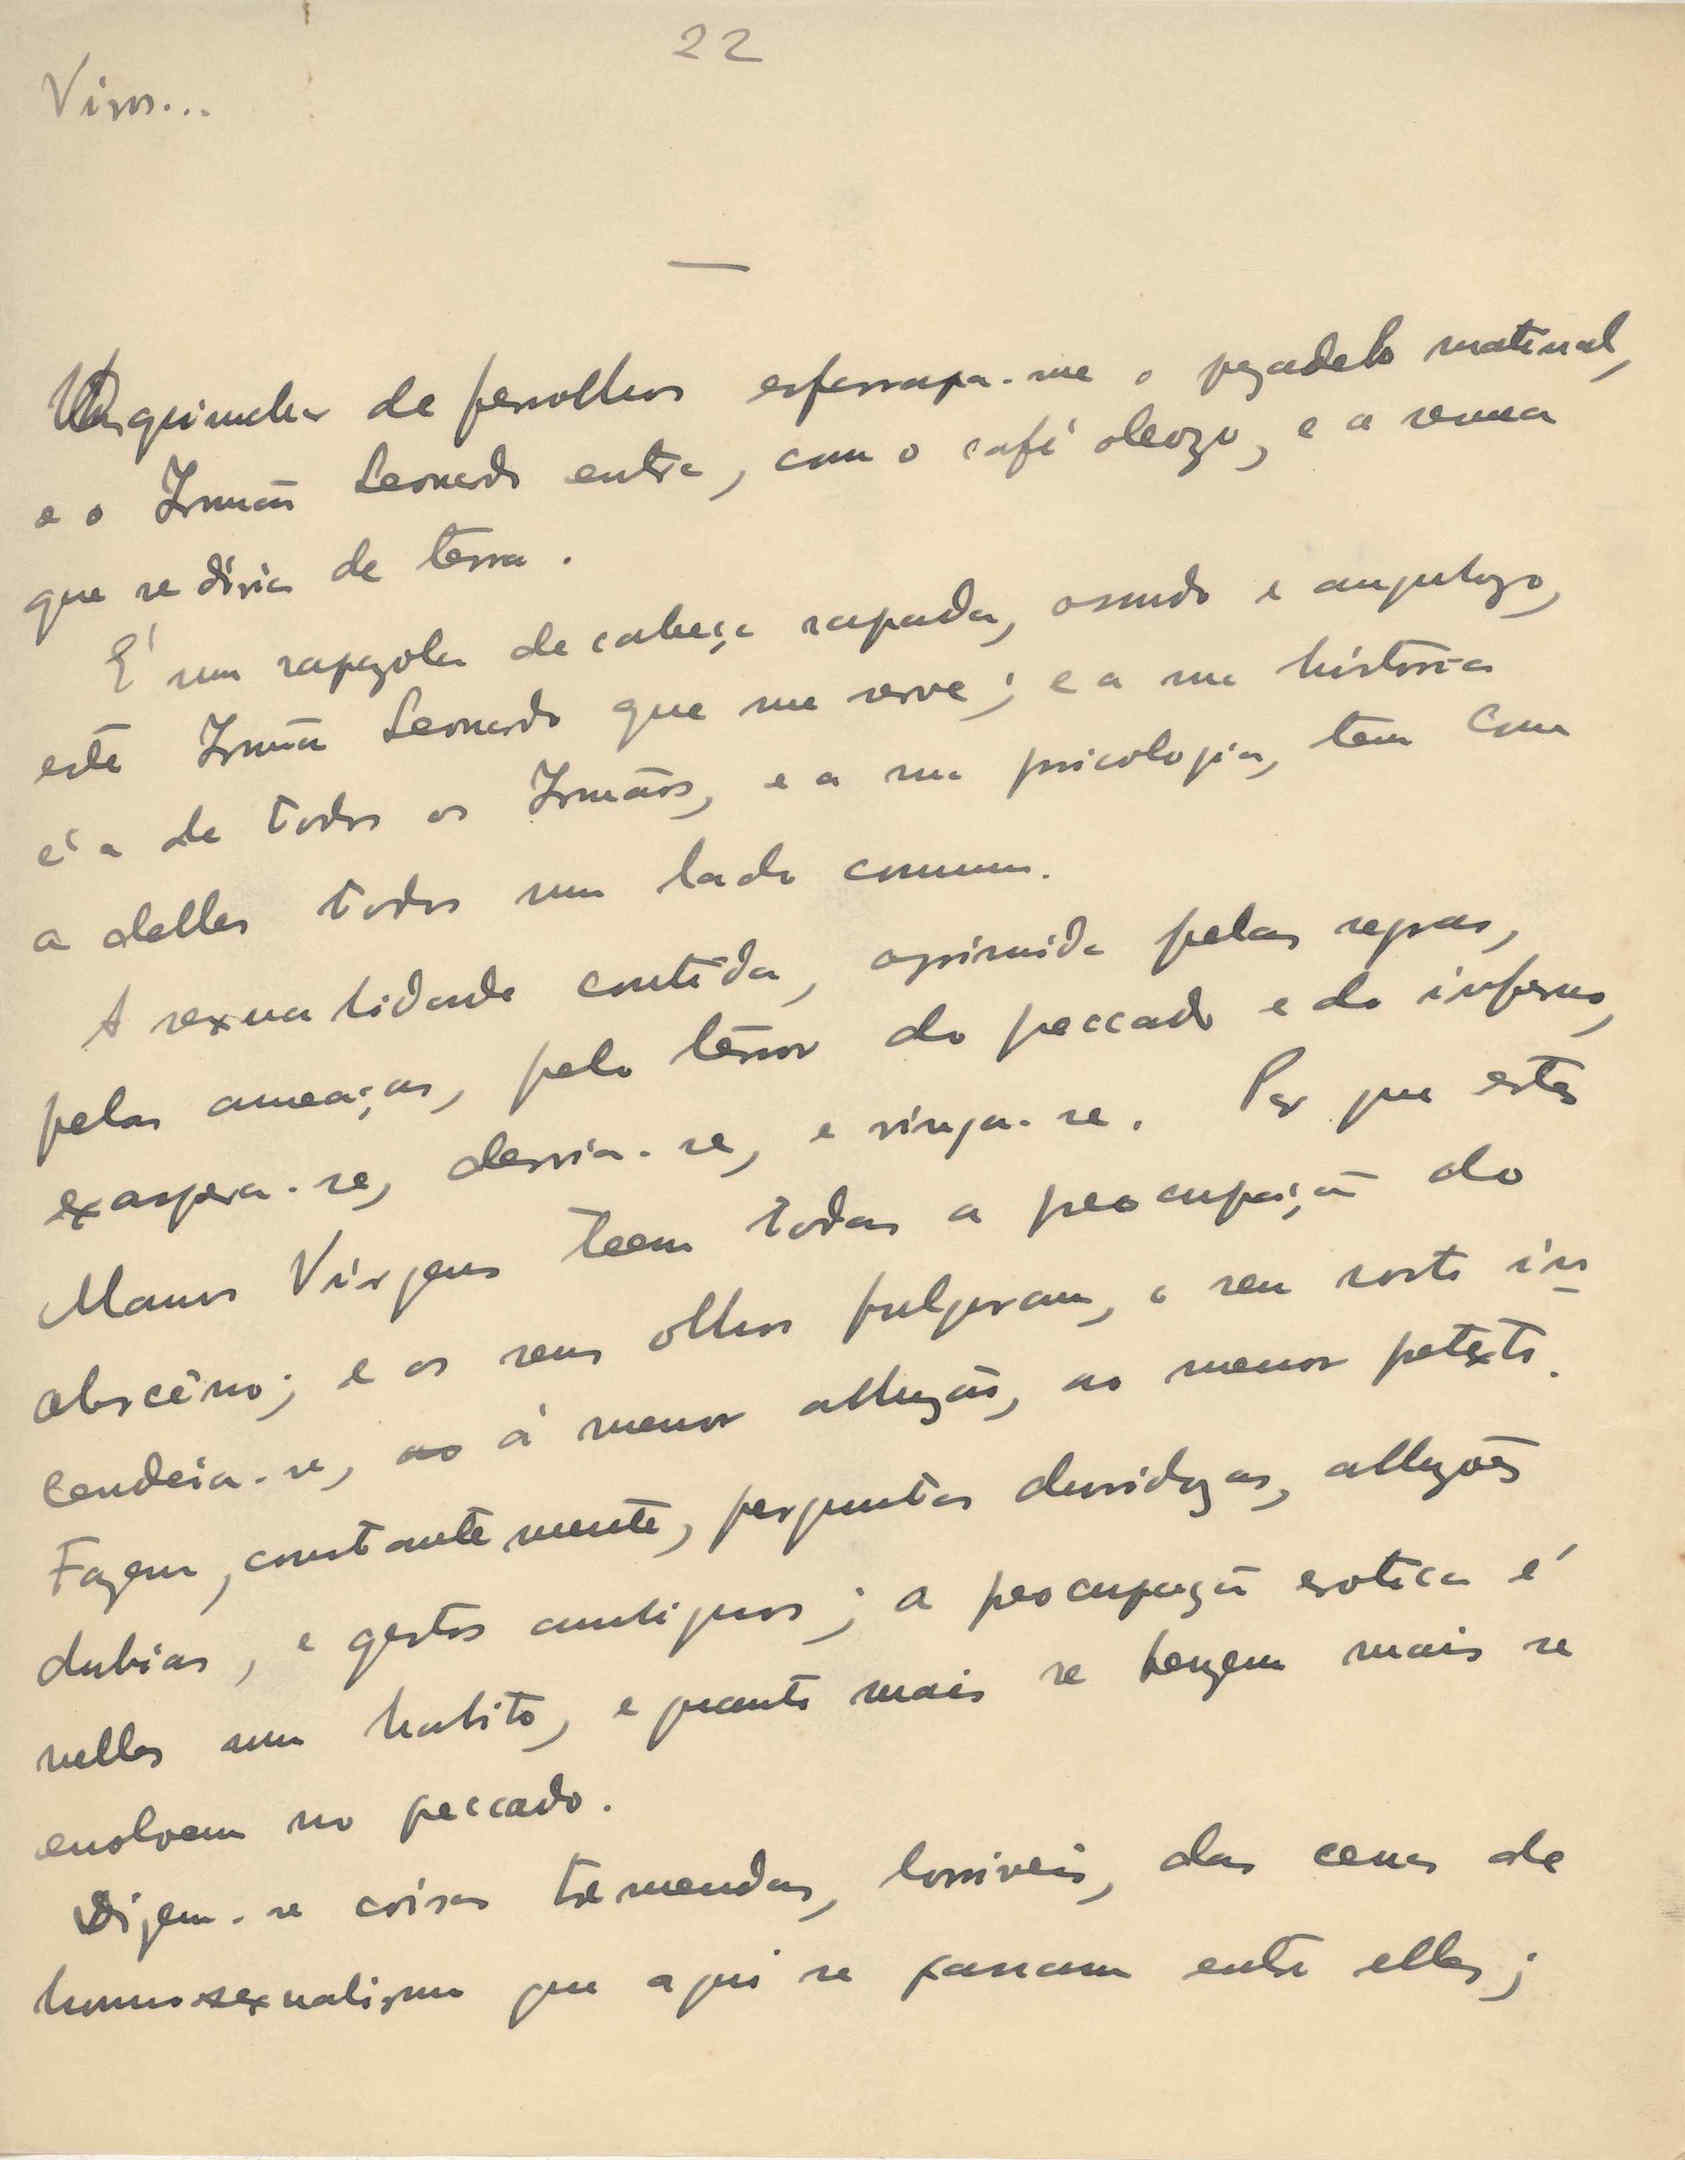 22
Vivos...
guinchar de ferrolhos esfarrapa-me o pezadelo matinal,
e o Irmão Leonardo entra, com o café oleozo, e a semea
que se diria de terra.
É um rapazola de cabeça rapada, ossudo e angulozo,
este Irmão Leonardo que me serve; e a sua historia
é a de todos os Irmãos, e a sua psicologia, tem com
a delles todos um lado comum.
A sexualidade contida, oprimida pelas regras,
pelas ameaças, pelo terror do peccado e do inferno,
exaspera-se, desvia-se, e vinga-se. Por que estes
Manos Virgens teem todos a preocupação do
obsceno; e os seus olhos fulguram, o seu rosto in-
cendeia-se, ao á menor alluzão, ao menor pretexto.
Fazem, constantemente, perguntas duvidozas, alluzões
dubias, e gestos ambiguos; a preocupação erotica é
nelles um habito, e quanto mais se benzem mais se
enolvem no peccado.
Dizem-se coisas tremendas, horriveis, das cenas de
homosexualismo que aqui se passam entre elles;